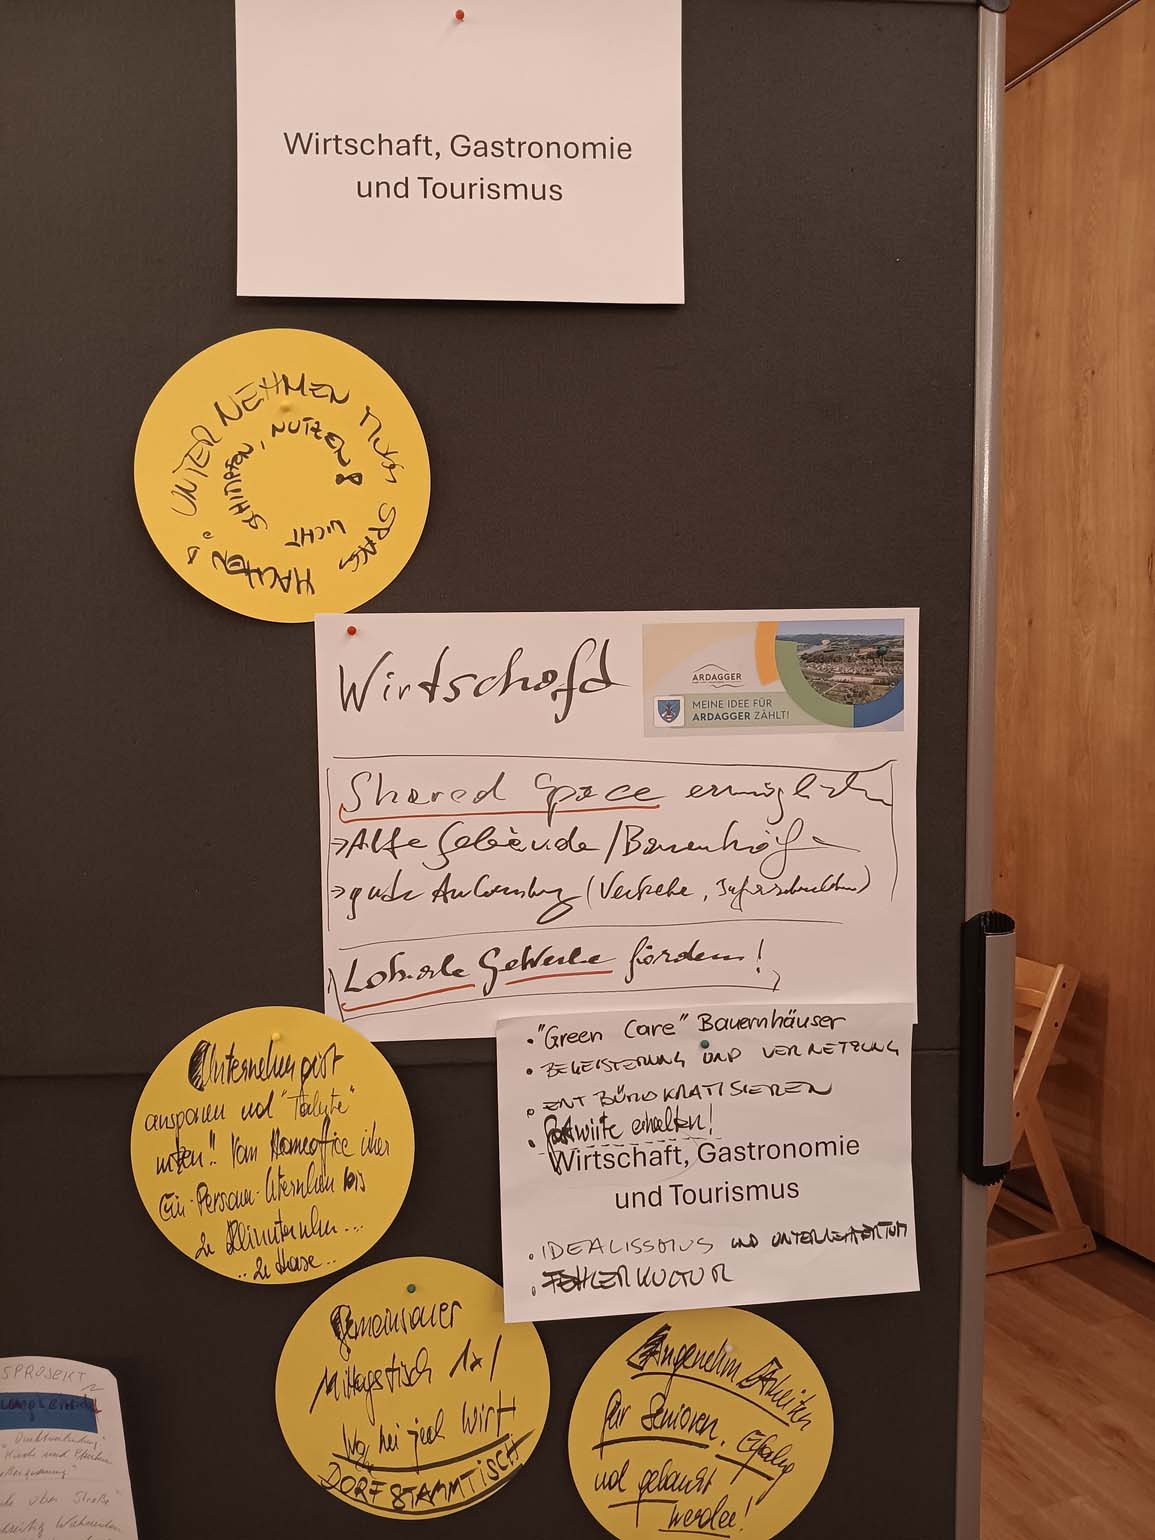 Wirtschaft, Gastronomie
und Tourismus
UNTERNEHMEN MUSS SPASS MACHEN
NICHT SCHIMPFEN, NUTZEN!
Wirtschofd
ARDAGGER
MEINE IDEE FÜR
ARDAGGER ZÄHLT!
Shared Space ermöglichen
→ Alte Gebäude / Bauernhöfe
→ gute Anbindung (Verkehr, Infrastruktur)
Lokale Gewerbe fördern!
• "Green Care" Bauernhäuser
• BEGEISTERUNG UND VERNETZUNG
• ENTBÜROKRATISIEREN
• Gastwirte erhalten!
Wirtschaft, Gastronomie
und Tourismus
• IDEALISMUS UND UNTERNEHMERTUM
• FEHLERKULTUR
Unternehmergeist
anspornen und "Talente"
nutzen!! Vom Homeoffice über
Ein-Person-Unternehmen bis
zu Kleinunternehmen...
.. zu Hause..
Gemeinsamer
Mittagstisch 1x/
Wo. bei jed. Wirt
DORFSTAMMTISCH
Angenehm Arbeiten
für Senioren, Erfahrung
und gebraucht
werden!
SPROJEKT
"Direktverbindung"
über Straße